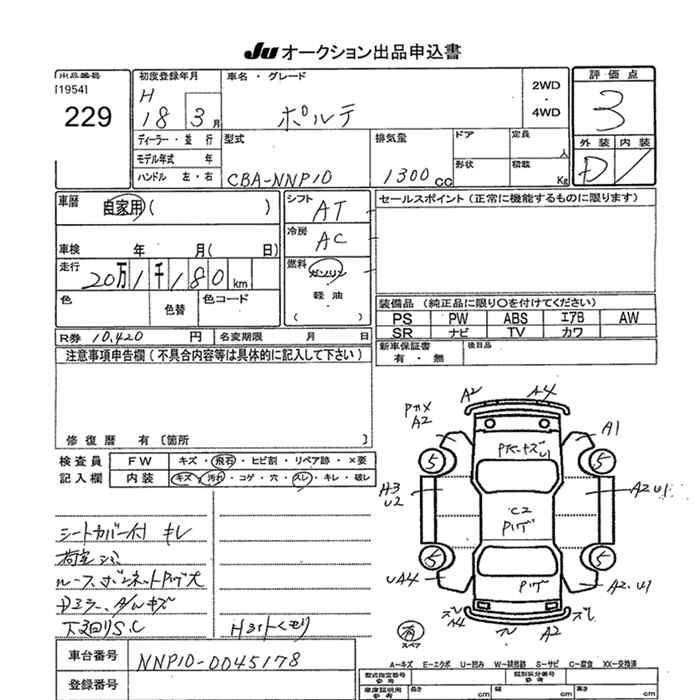 Ju オークション出品申込書
出品番号
[1954]
229
初度登録年月
H
18 3 月
ディーラー・並行
モデル年式 年
ハンドル 左・右
車名・グレード
ポルテ
2WD
・
4WD
型式
CBA-NNP10
排気量
1300 CC
ドア
定員
人
形状
積載
Kg
評価点
3
外装 内装
D
車歴
自家用 ( )
車検 年 月( 日)
走行
20万 1千 180 km
色
色替
色コード
シフト
AT
冷房
AC
燃料
ガソリン
軽油
( )
セールスポイント (正常に機能するものに限ります)
装備品 (純正品に限り○を付けてください)
PS PW ABS エアB AW
SR ナビ TV カワ
新車保証書
有・無
後日品
R券 10,420 円
名変期限 月 日
注意事項申告欄 (不具合内容等は具体的に記入して下さい)
修復歴 有 [箇所 ]
検査員
記入欄
FW キズ・飛石・ヒビ割・リペア跡・×要
内装 キズ・汚れ・コゲ・穴・スレ・キレ・破レ
シートカバー付 キレ
荷室シミ
ルーフ、ボンネットPハゲ大
ドミラー、
下回りS.C
Hライトくもり
A2 A4
A2
A1
5 5
A3
U2
A2 U1
C2
Pハゲ
5 5
UA4
Pハゲ
A2.U1
A4
A2
有
スペア
A-キズ E-エクボ U-凹み W-補修跡 S-サビ C-腐食 XX-交換済
車台番号 NNP10-0045178
登録番号
型式指定番号
参考
類別区分番号
参考
車庫証明用
参考
長さ cm 幅 cm 高さ cm